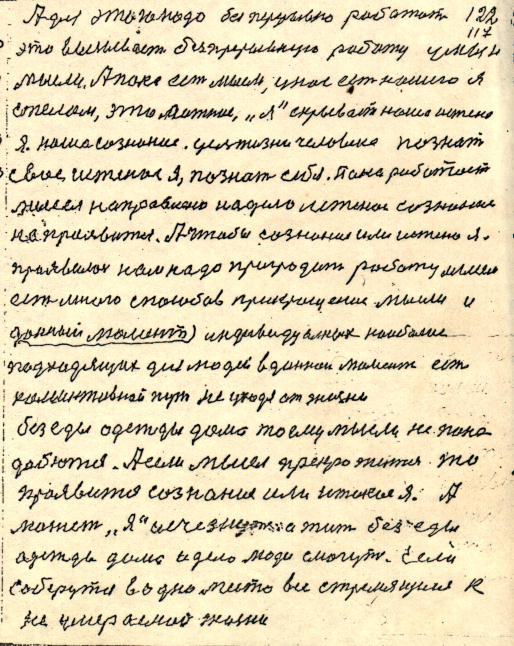 А для этого надо беспрерывно работат 122
117
это вызывает безпрерывную работу умы и
мысли. А пока ест мысл, у нас ест нашего я
с телом, это ложное, „я“ скрывает наше истено
я. наша сознание. цел жизни человека познат
свое истеное я, познат себя. Пока работает
мысел направлено на дело истеное сознание
не проявится. А чтобы сознание или истено я.
проявилос нам надо прегродит работу мысел
ест много способов прекрощение мысли и
данный момент) индивидуалных наиболее
подходящих для людей в данной момент ест
не уходя от жизни
без еды одежды дома то ему мысли не пона
добются. А если мысел прекротится то
проявится сознание или истеное я. А
может „я“ исчезнут а жит без еды
одежды дома и дело люди смогут. Если
соберутся в одно место все стремящиеся к
не умераемой жизни